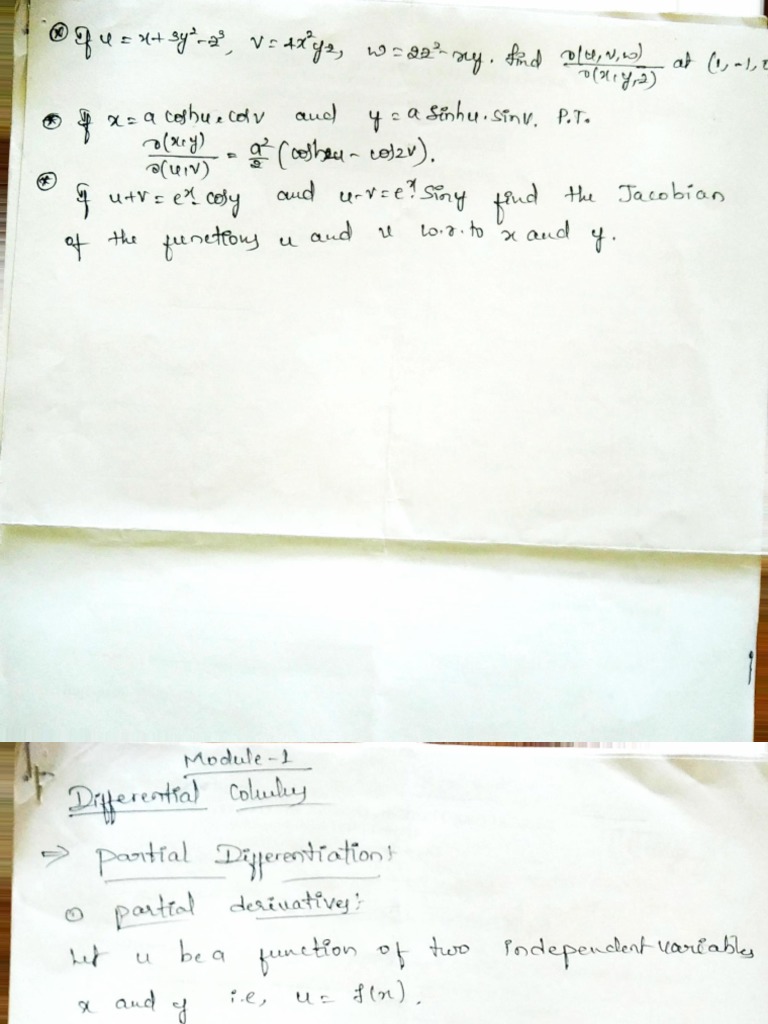 ⊛ If u = x+3y²-z³, v = 4x²yz, w = 2z²-xy. find ∂(u,v,w)/∂(x,y,z) at (1,-1,
⊛ If x = a coshu.cosv and y = a sinhu.sinv. P.T.
∂(x,y)/∂(u,v) = a²/2 (cosh2u - cos2v).
⊛ If u+v = eˣ. cosy and u-v = eˣ. siny find the Jacobian
of the functions u and v w.r.to x and y.
Module-1
Differential
⇒ Partial Differentiation:
⊙ partial derivatives:
Let u be a function of two independent variables
x and y i.e, u = f(x).